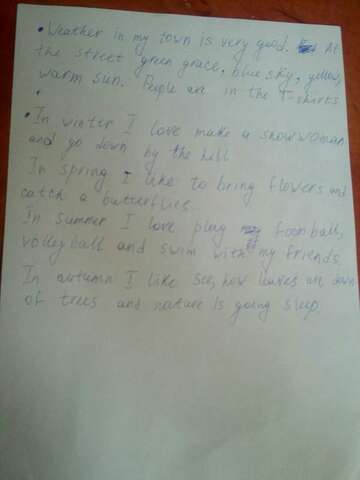 • Weather in my town is very good. At
the street green grace, blue sky, yellow,
warm sun. People are in the T-shirts
• In winter I love make a snowwoman
and go down by the hill
In spring I like to bring flowers and
catch a butterflies.
In summer I love play foonball,
volleyball and swim with my friends.
In autumn I like see, how leaves are down
of trees and nature is going sleep.